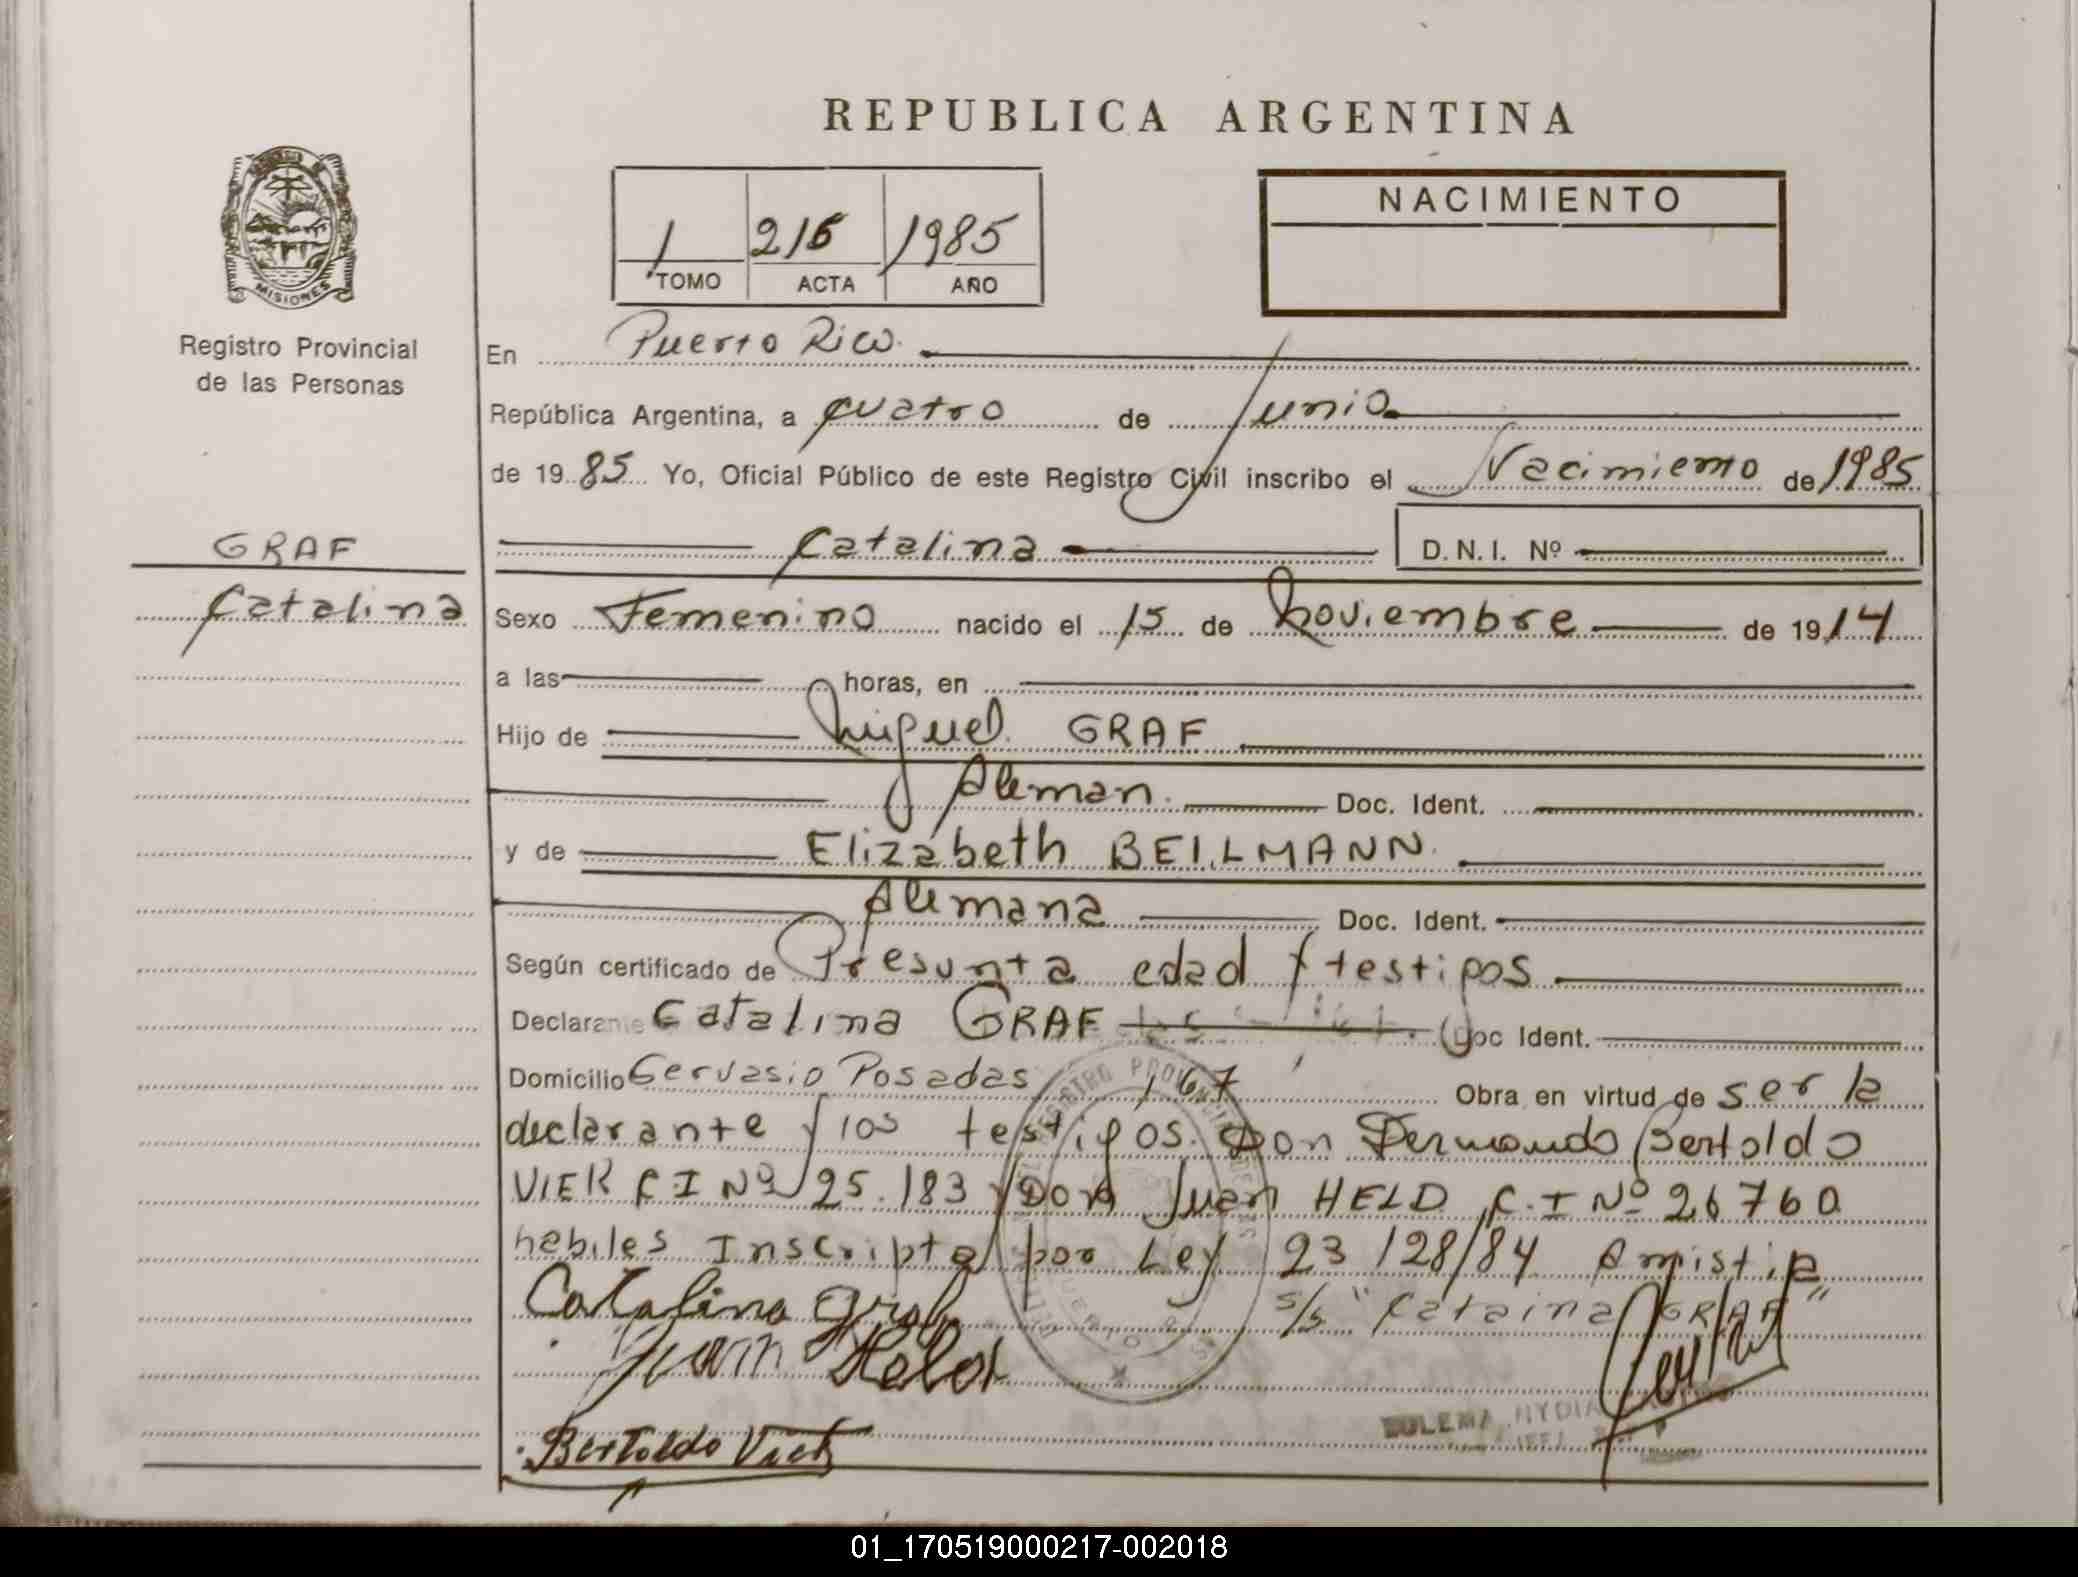 REPUBLICA ARGENTINA
MISIONES
Registro Provincial
de las Personas
1 216 1985
TOMO ACTA AÑO
NACIMIENTO
En Puerto Rico.
República Argentina, a cuatro de Junio
de 1985 Yo, Oficial Público de este Registro Civil inscribo el Nacimiento de 1985
Catalina D.N.I. Nº
GRAF
Catalina
Sexo Femenino nacido el 15 de Noviembre de 1914
a las horas, en
Hijo de Miguel GRAF
Aleman. Doc. Ident.
y de Elizabeth BELLMANN.
Alemana Doc. Ident.
Según certificado de Presunta edad y testigos
Declarante Catalina GRAF Doc Ident.
Domicilio Gervasio Posadas 167 Obra en virtud de ser la
declarante y los testigos. Don Bertoldo
VIER C I Nº 25.183 y Don Juan HELD C.I Nº 26760
habiles Inscripta por Ley 23128/84 Amistia
s/s "Cataina GRAF"
Catalina Graf
Juan Held
Bertoldo Vier
ZULEMA NYDIA
01_170519000217-002018